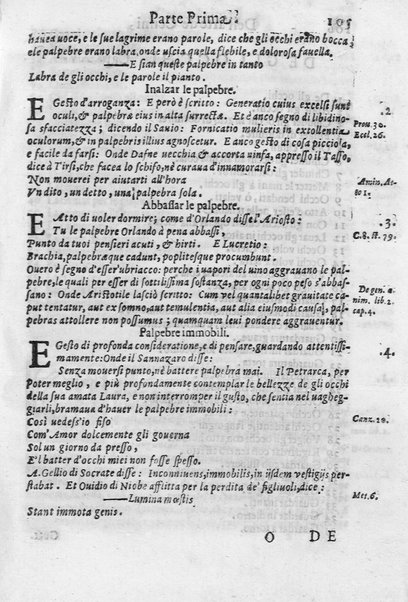 Parte Prima. 105
haueà uoce, e le sue lagrime erano parole, dice che gli occhi erano bocca
e le palpebre erano labra, onde uscia quella flebile, e dolorosa fauella.
E sian queste palpebre in tanto
Labra de gli occhi, e le parole il pianto.
Inalzar le palpebre. .2.
E Gesto d'arroganza: E però è scritto: Generatio cuius excelsi sunt
oculi, & palpebræ eius in alta surrectæ. Et è anco segno di libidino- Prou. 30.
sa sfacciatezza; dicendo il Sauio: Fornicatio mulieris in extollentia Eccl. 26.
oculorum, & in palpebris illius agnoscetur. E anco gesto di cosa picciola,
e facile da farsi: Onde Dafne uecchia & accorta uinfa, appresso il Tasso,
dice à Tirsi, che facea lo schifo, nè curaua d'innamorarsi:
Non mouerei per aiutarti all'hora Amin. At-
Vn dito, un detto, una palpebra sola. to 1.
Abbassar le palpebre.
E Atto di uoler dormire; come d'Orlando disse l'Ariosto: .3.
Tu le palpebre Orlando à pena abbassi, C.8. st. 79.
Punto da tuoi pensieri acuti, & hirti. E Lucretio:
Brachia, palpebræque cadunt, poplitesque procumbunt.
Ouero è segno d'esser'ubriacco: perche i uapori del uino aggrauano le pal-
pebre, le quali per esser di sottilissima sostanza, per ogni poco peso s'abbas-
sano: Onde Aristotile lasciò scritto: Cum vel quantalibet grauitate ca De gen. a-
put tentatur, aut ex somno, aut temulentia, aut alia eiusmodi causa, pal- nim. lib. 2.
pebras attollere non possumus; quamquam leui pondere aggrauentur. cap. 4.
Palpebre immobili.
E Gesto di profonda consideratione, e di pensare, guardando attentissi- .4.
mamente: Onde il Sannazaro disse:
Senza mouersi punto, nè battere palpebra mai. Il Petrarca, per
Poter meglio, e più profondamente contemplar le bellezze de gli occhi
della sua amata Laura, e non interromper il gusto, che sentia nel uagheg-
giarli, bramaua d'hauer le palpebre immobili:
Così uedess'io fiso Canz. 10.
Com'Amor dolcemente gli gouerna
Sol un giorno da presso,
E'l batter d'occhi miei non fosse spesso.
A. Gellio di Socrate disse: Inconniuens, immobilis, in ijsdem vestigijs per-
stabat. Et Ouidio di Niobe afflitta per la perdita de' figliuoli, dice: Met. 6.
Lumina mœstis
Stant immota genis.
O DE